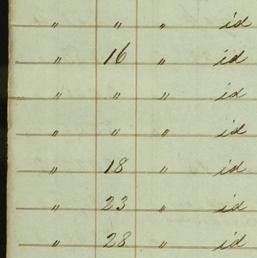 " " " id
" 16 " id
" " " id
" " " id
" 18 " id
" 23 " id
" 28 " id